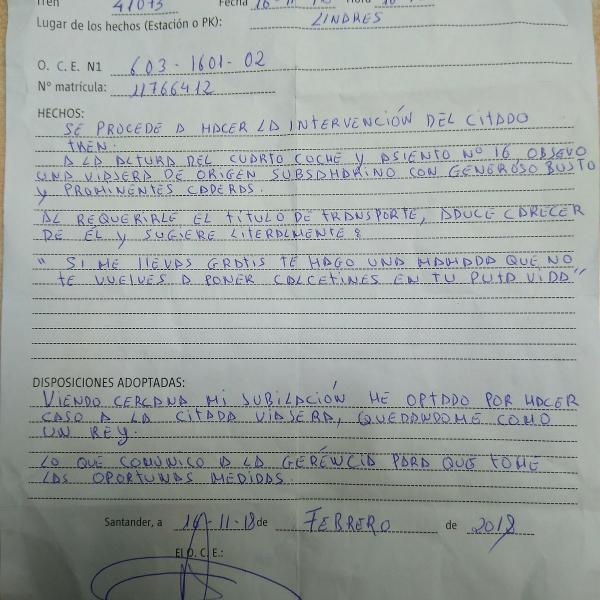 Tren 41073 Fecha 16-11-18 Hora
Lugar de los hechos (Estación o PK): LINDRES
O. C. E. N1 603-1601-02
Nº matrícula: 11766412
HECHOS:
SE PROCEDE A HACER LA INTERVENCIÓN DEL CITADO
TREN.
A LA ALTURA DEL CUARTO COCHE Y ASIENTO Nº 16, OBSEVO
UNA VIAJERA DE ORIGEN SUBSAHARINO CON GENEROSO BUSTO
Y PROMINENTES CADERAS.
AL REQUERIRLE EL TÍTULO DE TRANSPORTE, ADUCE CARECER
DE ÉL Y SUGIERE LITERALMENTE:
" SI ME LLEVAS GRATIS TE HAGO UNA MAMADA QUE NO
TE VUELVES A PONER CALCETINES EN TU PUTA VIDA"
DISPOSICIONES ADOPTADAS:
VIENDO CERCANA MI JUBILACIÓN ME OPTADO POR HACER
CASO A LA CITADA VIAJERA, QUEDANDOME COMO
UN REY.
LO QUE COMUNICO A LA GERENCIA PARA QUE TOME
LAS OPORTUNAS MEDIDAS.
Santander, a 16-11-18 de FEBRERO de 2018
EL O. C. E.: